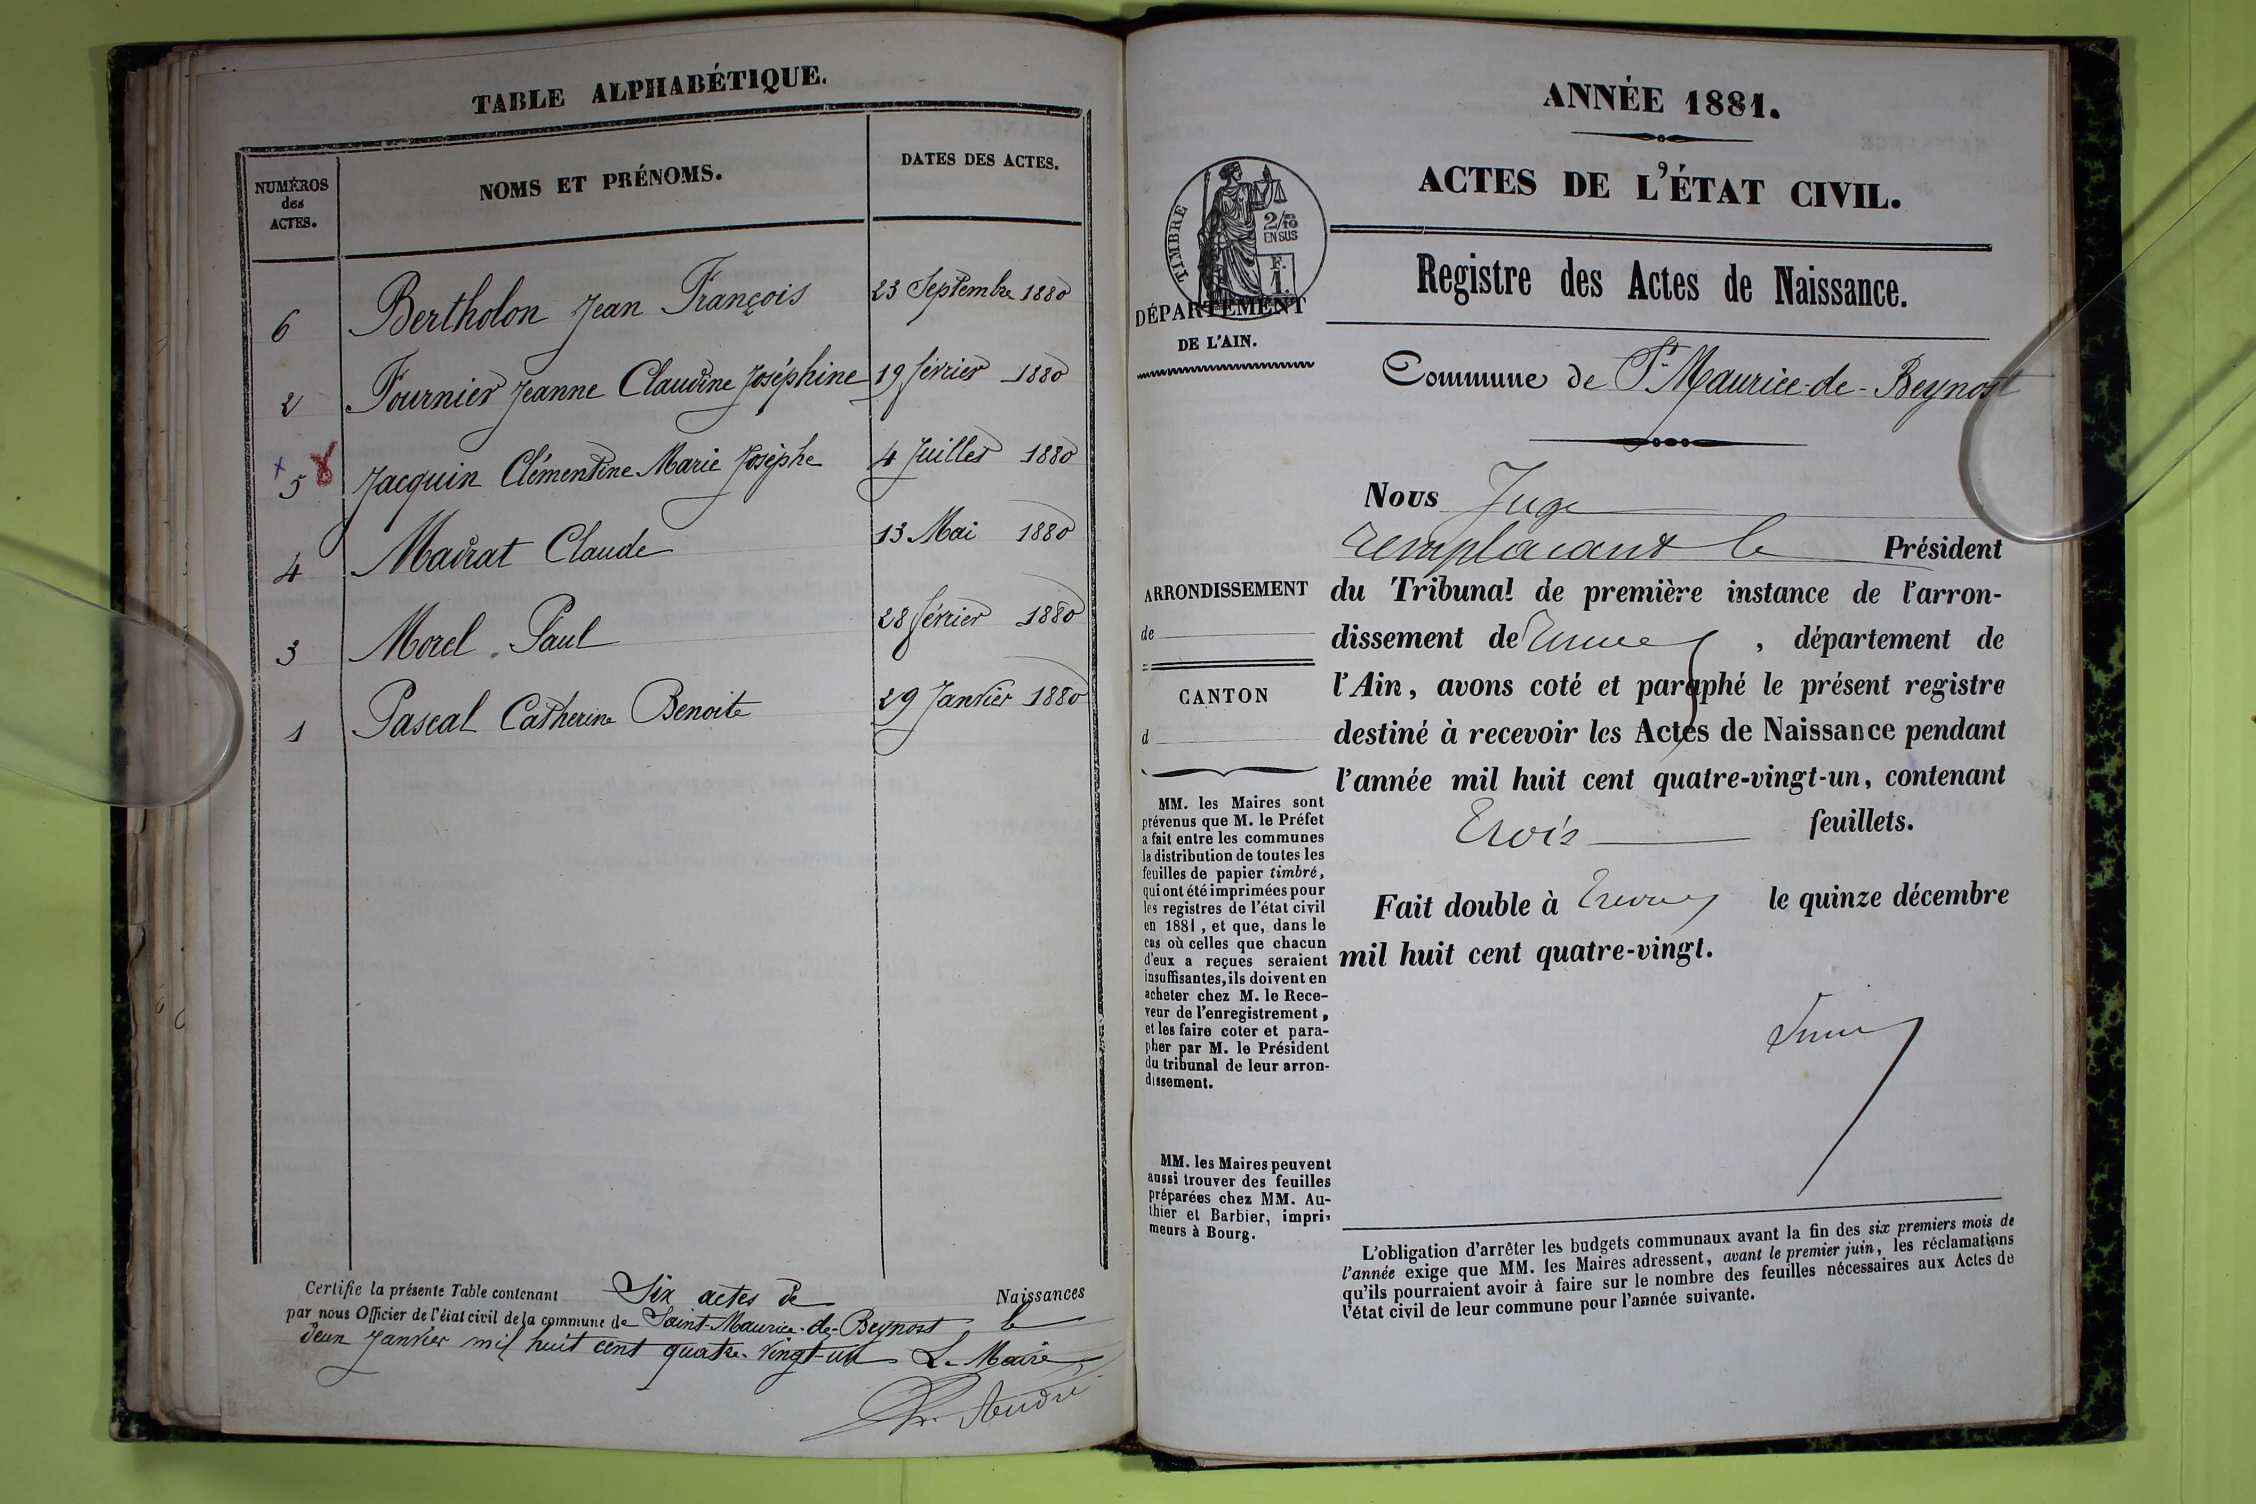 TABLE ALPHABÉTIQUE.
NUMÉROS
des
ACTES.
NOMS ET PRÉNOMS.
DATES DES ACTES.
6 Bertholon Jean François 23 Septembre 1880
2 Fournier Jeanne Claudine Joséphine 19 février 1880
5 Jacquin Clémentine Marie Josèphe 4 Juillet 1880
4 Claude 13 Mai 1880
3 Morel Paul 28 février 1880
1 Pascal Catherine Benoite 29 Janvier 1880
Certifie la présente Table contenant Six actes de Naissances
par nous Officier de l'état civil de la commune de Saint-Maurice-de-Beynost le
deux Janvier mil huit cent quatre-vingt-un Le Maire
ANNÉE 1881.
ACTES DE L'ÉTAT CIVIL.
TIMBRE
2/10
EN SUS
F.
1.
DÉPARTEMENT
DE L'AIN.
Registre des Actes de Naissance.
Commune de St Maurice-de-Beynost
Nous Juge
remplaçant le Président
du Tribunal de première instance de l'arron-
dissement de , département de
l'Ain, avons coté et paraphé le présent registre
destiné à recevoir les Actes de Naissance pendant
l'année mil huit cent quatre-vingt-un, contenant
Trois feuillets.
Fait double à Trévoux le quinze décembre
mil huit cent quatre-vingt.
ARRONDISSEMENT
de
CANTON
d
MM. les Maires sont
prévenus que M. le Préfet
a fait entre les communes
la distribution de toutes les
feuilles de papier timbré,
qui ont été imprimées pour
les registres de l'état civil
en 1881, et que, dans le
cas où celles que chacun
d'eux a reçues seraient
insuffisantes, ils doivent en
acheter chez M. le Rece-
veur de l'enregistrement,
et les faire coter et para-
pher par M. le Président
du tribunal de leur arron-
dissement.
MM. les Maires peuvent
aussi trouver des feuilles
préparées chez MM. Au-
thier et Barbier, impri-
meurs à Bourg.
L'obligation d'arrêter les budgets communaux avant la fin des six premiers mois de
l'année exige que MM. les Maires adressent, avant le premier juin, les réclamations
qu'ils pourraient avoir à faire sur le nombre des feuilles nécessaires aux Actes de
l'état civil de leur commune pour l'année suivante.